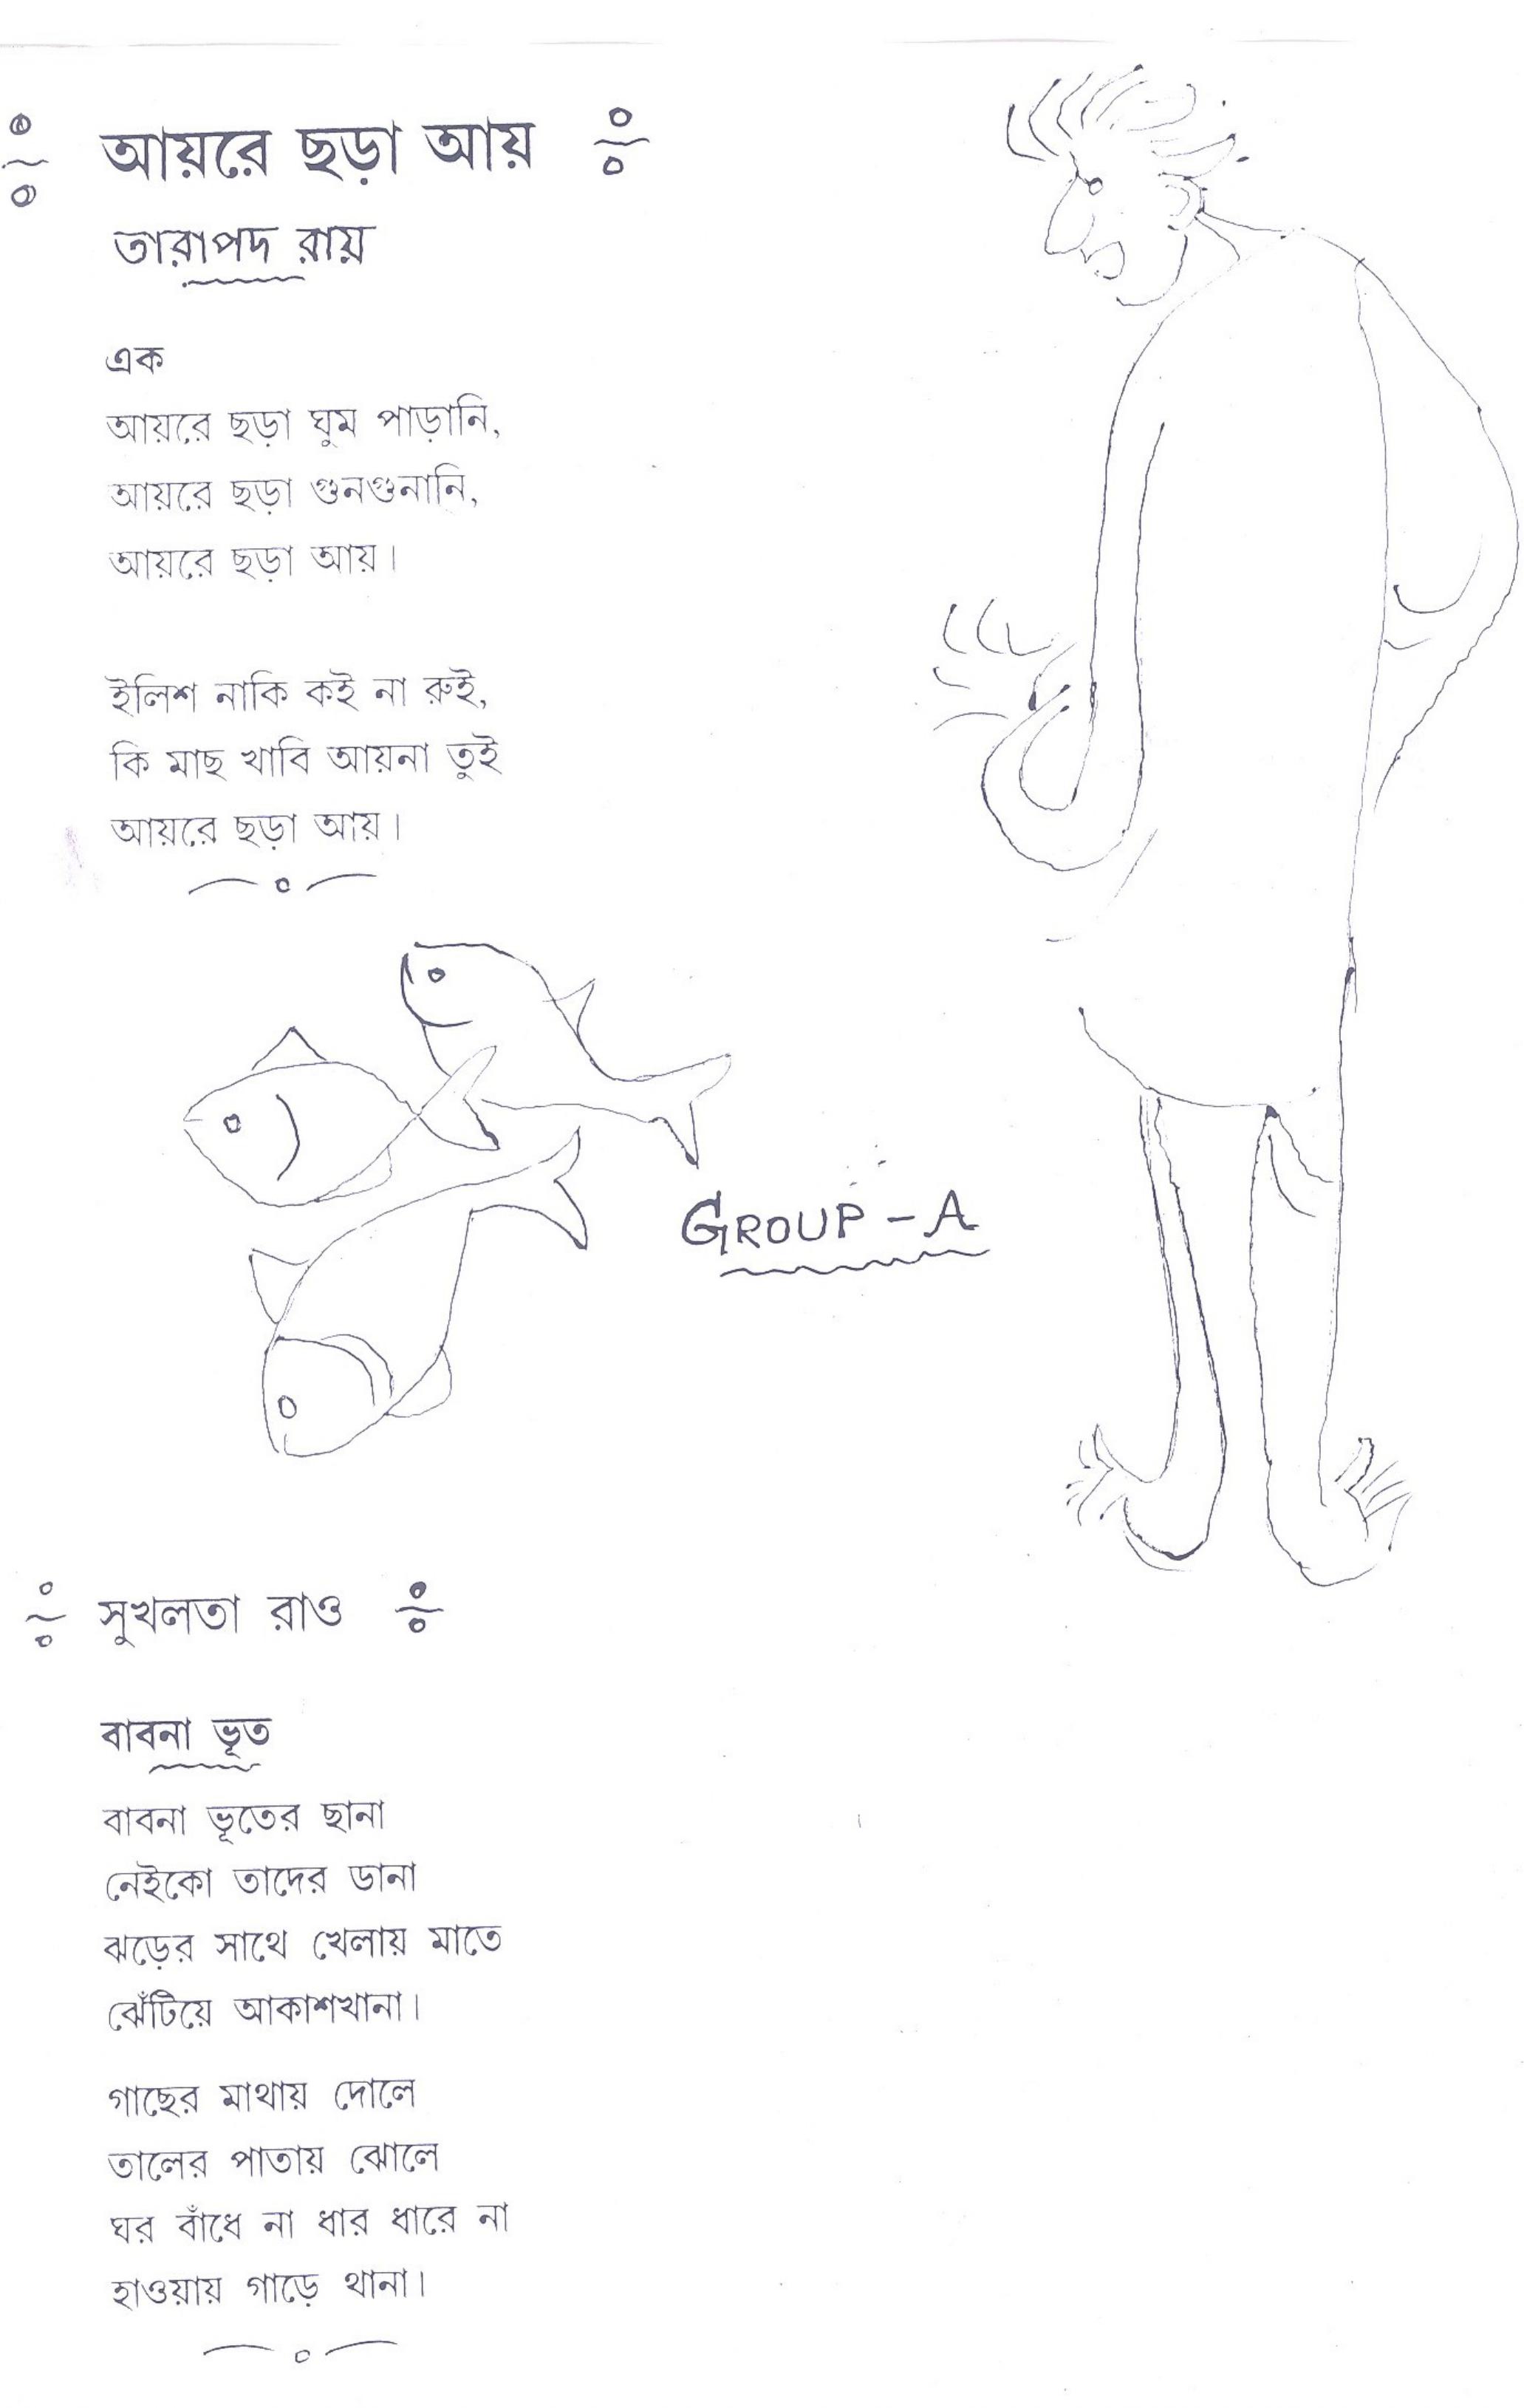 আয়রে ছড়া আয়
তারাপদ রায়
এক
আয়রে ছড়া ঘুম পাড়ানি,
আয়রে ছড়া গুনগুনানি,
আয়রে ছড়া আয়।
ইলিশ নাকি কই না রুই,
কি মাছ খাবি আয়না তুই
আয়রে ছড়া আয়।
GROUP - A
সুখলতা রাও
বাবনা ভূত
বাবনা ভূতের ছানা
নেইকো তাদের ডানা
ঝড়ের সাথে খেলায় মাতে
ঝেঁটিয়ে আকাশখানা।
গাছের মাথায় দোলে
তালের পাতায় ঝোলে
ঘর বাঁধে না ধার ধারে না
হাওয়ায় গাড়ে থানা।